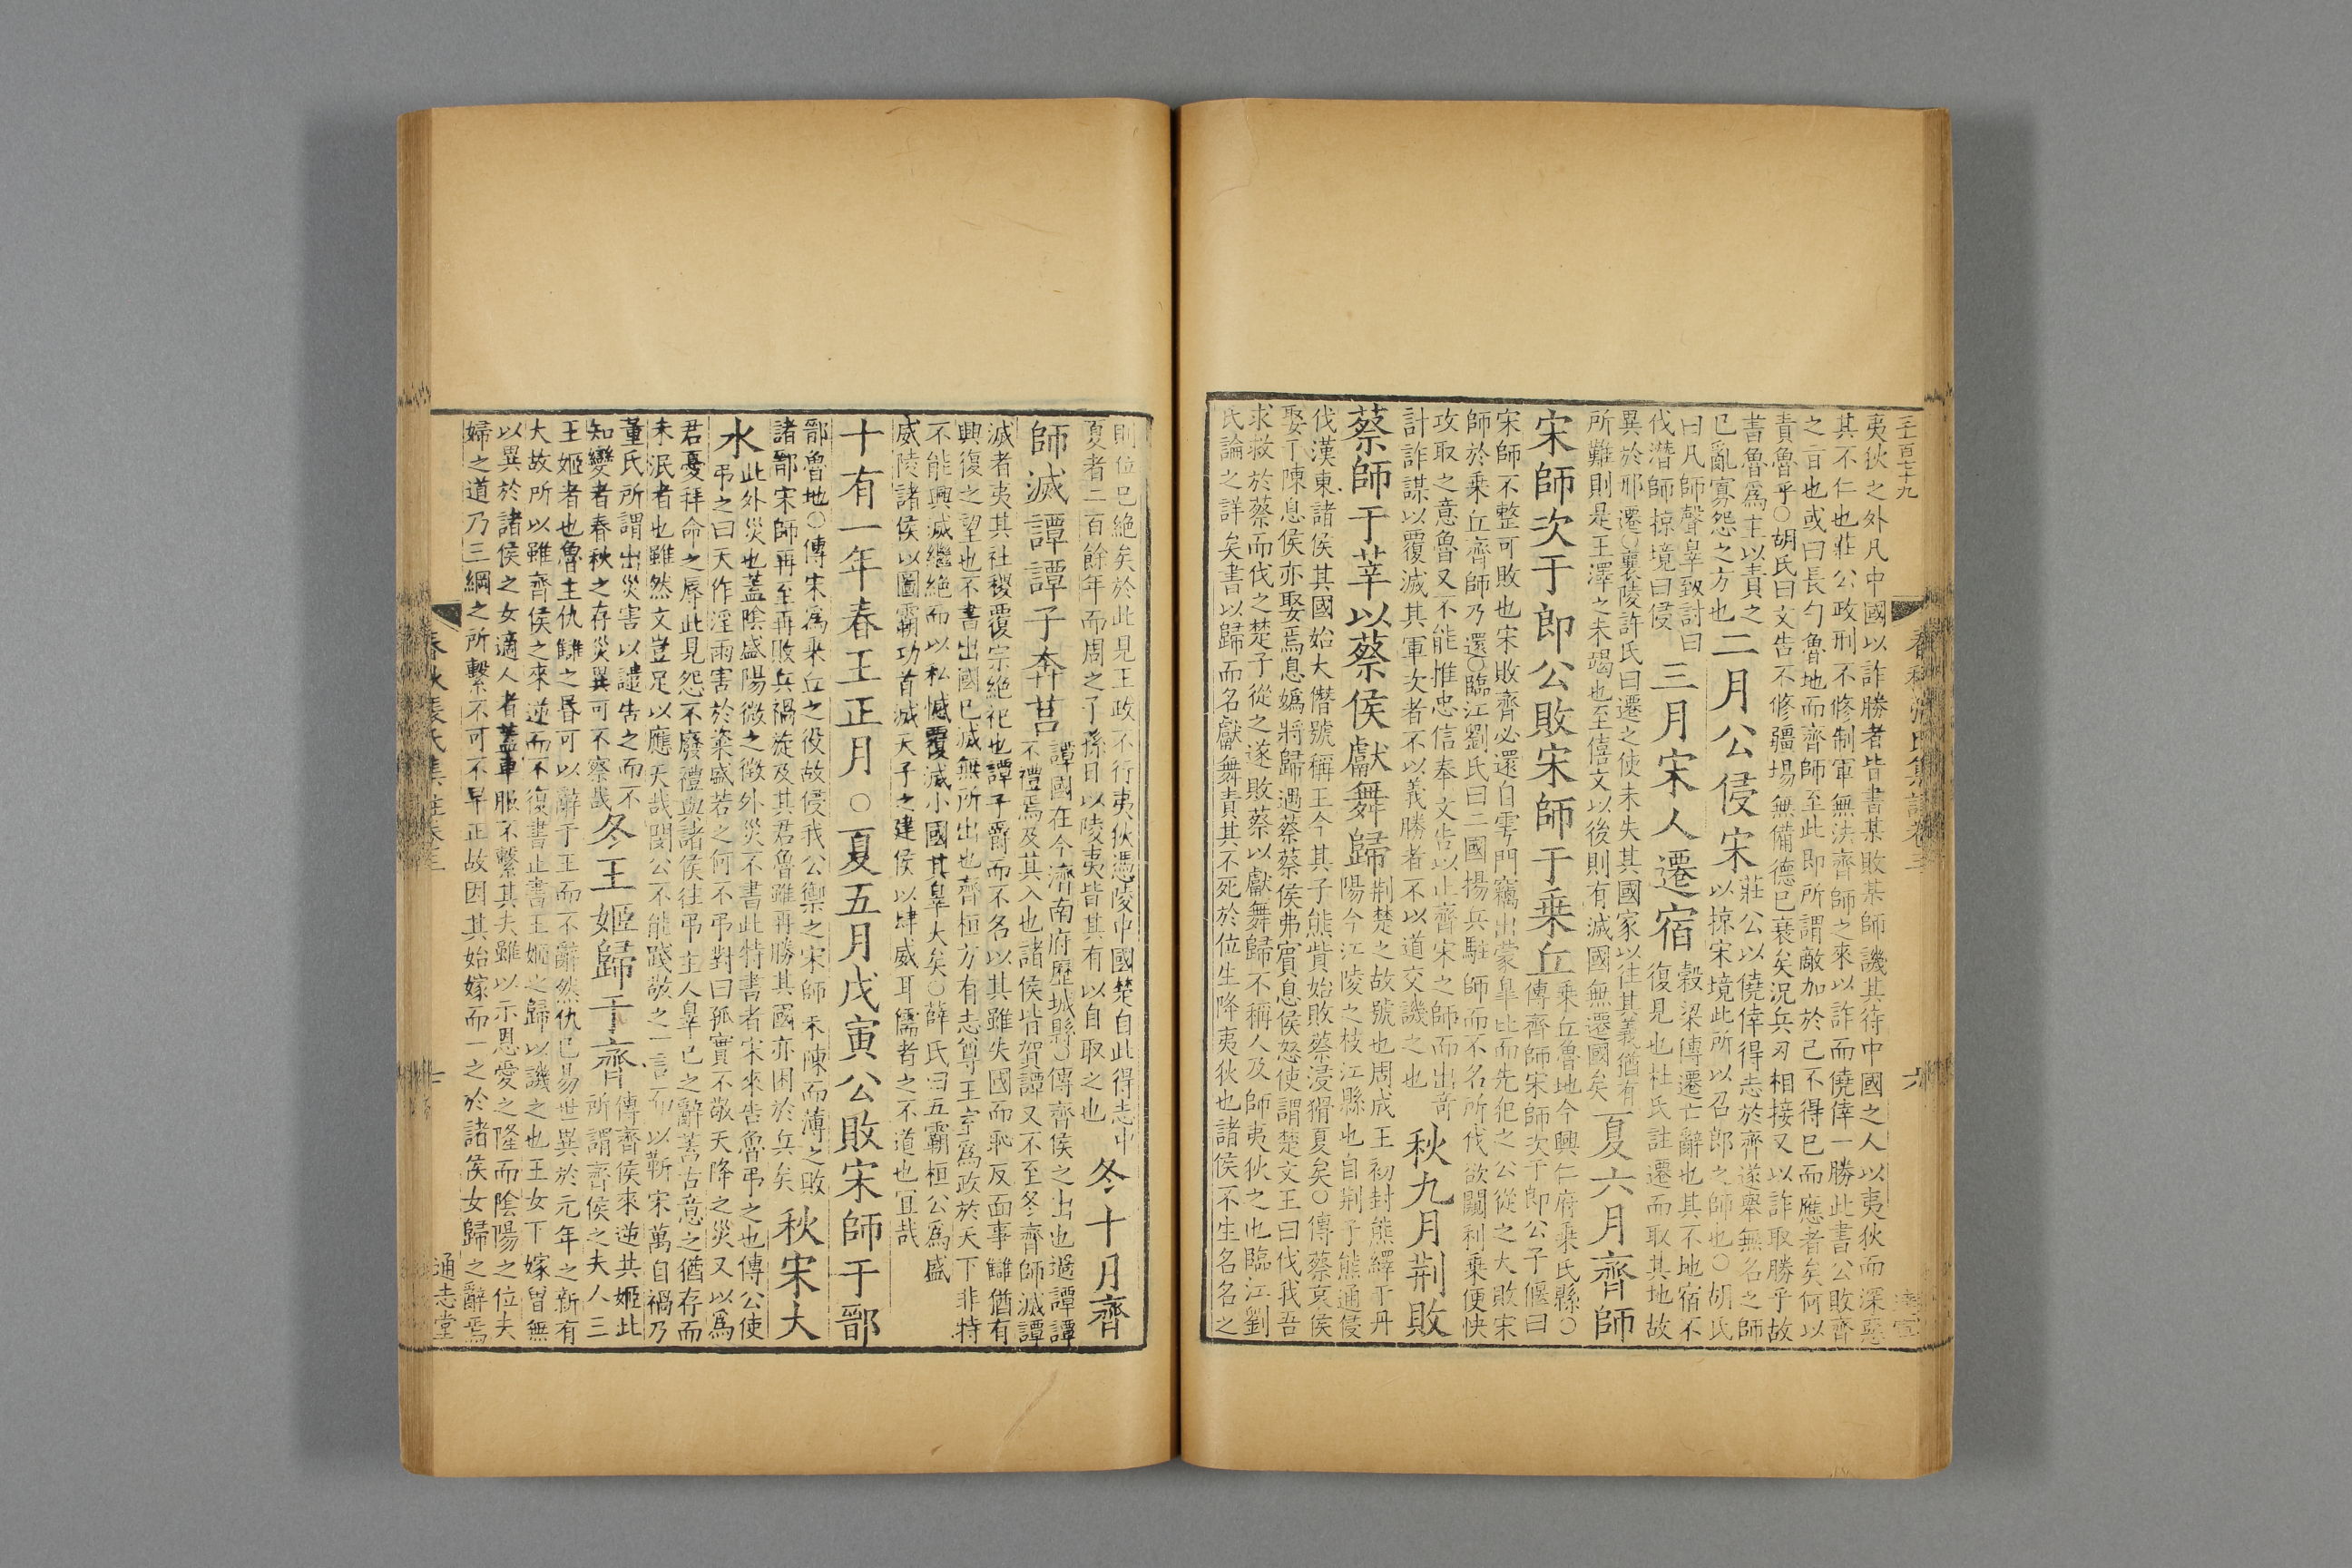 夷狄之外凡中國以詐勝者皆書某敗某師譏其待中國之人以夷狄而深惡
其不仁也莊公政刑不修制軍無法齊師之來以詐而僥倖一勝此書公敗齊
之百也或曰長勺魯地而齊師至此即所謂敵加於己不得巳而應者矣何以
責魯乎○胡氏曰文告不修疆埸無備德巳衰矣况兵刃相接又以詐取勝乎故
書魯爲主以責之
巳亂寡怨之方也二月公侵宋莊公以僥倖得志於齊遂舉無名之師
以掠宋境此所以召郎之師也○胡氏
曰凡師聲辠致討曰
伐潛師掠境曰侵三月宋人遷宿穀梁傳遷亡辭也其不地宿不
復見也杜氏註遷而取其地故
異於邢遷○襄陵許氏曰遷之使未失其國家以往其義猶有
所難則是王澤之未竭也至僖文以後則有滅國無遷國矣夏六月齊師
宋師次于郎公敗宋師于乗丘乗丘魯地今興仁府乗氏縣○
傳齊師宋師次于郎公子偃曰
宋師不整可敗也宋敗齊必還自雩門竊出蒙皐比而先犯之公從之大敗宋
師於乗丘齊師乃還○臨江劉氏曰二國揚兵駐師而不名所伐欲闚利乗便快
攻取之意魯又不能惟忠信奉文告以止齊宋之師而出奇
計詐謀以覆滅其軍次者不以義勝者不以道交譏之也秋九月荆敗
蔡師于莘以蔡侯獻舞歸荆楚之故號也周成王初封熊繹于丹
陽今江陵之枝江縣也自荆子熊通侵
伐漢東諸侯其國始大僭號稱王今其子熊貲始敗蔡浸猾夏矣○傳蔡哀侯
娶于陳息侯亦娶焉息嬀將歸過蔡蔡侯弗賓息侯怒使謂楚文王曰伐我吾
求救於蔡而伐之楚子從之遂敗蔡以獻舞歸不稱人及師夷狄之也臨江劉
氏論之詳矣書以歸而名獻舞責其不死於位生降夷狄也諸侯不生名名之
則位巳絶矣於此見王政不行夷狄憑陵中國楚自此得志中
夏者二百餘年而周之子孫日以陵夷皆其有以自取之也冬十月齊
師滅譚譚子奔莒譚國在今濟南府歷城縣○傳齊侯之出也過譚譚
不禮焉及其入也諸侯皆賀譚又不至冬齊師滅譚
滅者夷其社稷覆宗絶祀也譚子爵而不名以其雖失國而恥反面事讎猶有
興復之望也不書出國巳滅無所出也齊桓方有志尊王室爲政於天下非特
不能興滅繼絶而以私憾覆滅小國其辠大矣○薛氏曰五霸桓公爲盛
威陵諸侯以圖霸功首滅天子之建侯以肆威耳儒者之不道也宜哉
十有一年春王正月○夏五月戊寅公敗宋師于鄑
鄑魯地○傳宋爲乗丘之役故侵我公禦之宋師未陳而薄之敗
諸鄑宋師再至再敗兵禍旋及其君魯雖再勝其國亦困於兵矣秋宋大
水此外災也蓋陰盛陽微之徴外災不書此特書者宋來告魯弔之也傳公使
弔之曰天作淫雨害於粢盛若之何不弔對曰孤實不敬天降之災又以爲
君憂拜命之辱此見怨不廢禮與諸侯往弔主人辠巳之辭蓋古意之猶存而
未泯者也雖然文豈足以應天哉閔公不能踐敬之一言而以靳宋萬自禍乃
董氏所謂出災害以譴告之而不
知變者春秋之存災異可不察哉冬王姬歸于齊傳齊侯來逆共姬此
所謂齊侯之夫人三
王姬者也魯主仇讎之昬可以辭于王而不辭然仇巳易世異於元年之新有
大故所以雖齊侯之來逆而不復書止書王姬之歸以譏之也王女下嫁曾無
以異於諸侯之女適人者蓋車服不繫其夫雖以示恩愛之隆而陰陽之位夫
婦之道乃三綱之所繫不可不早正故因其始嫁而一之於諸侯女歸之辭焉
通志堂